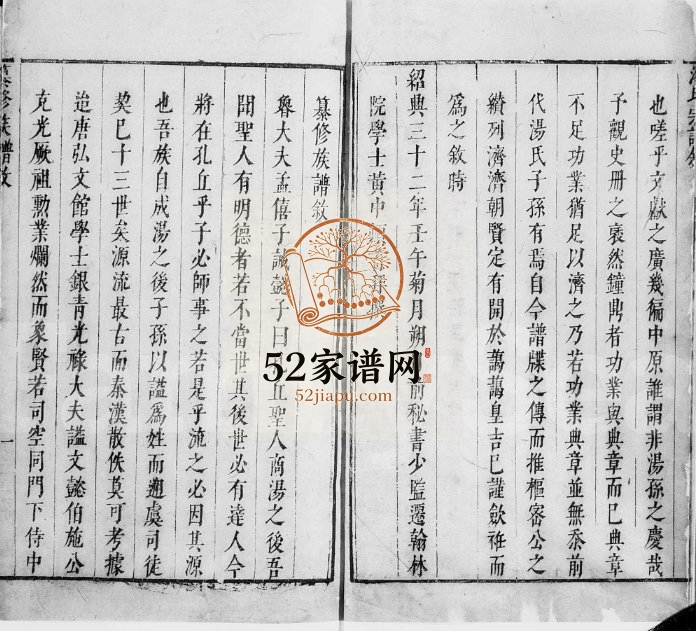 也嗟乎文獻之廣幾徧中原誰謂非湯孫之慶哉
予觀史冊之裒然鐘鼎者功業與典章而已典章
不足功業猶足以濟之乃若功業典章並無忝前
代湯氏子孫有焉自今譜牒之傳而推樞密公之
纘列濟濟朝賢定有開於藹藹皇吉巳謹斂袵而
為之敘時
紹興三十二年壬午菊月朔 前秘書少監遷翰林
院學士黃中
纂修族譜敘
魯大夫孟僖子誡懿子曰 丘聖人商湯之後吾
聞聖人有明德者若不當世其後世必有達人今
將在孔丘乎子必師事之若是乎流之必因其源
也吾族自成湯之後子孫以謚為姓而遡虞司徒
契巳十三世矣源流最古而秦漢散佚莫可考據
迨唐弘文館學士銀青光祿大夫謚文懿伯施公
克光厥祖勲業爛然而象賢若司空同門下侍中
纂修族譜敘
一
52家谱网
52jiapu.com